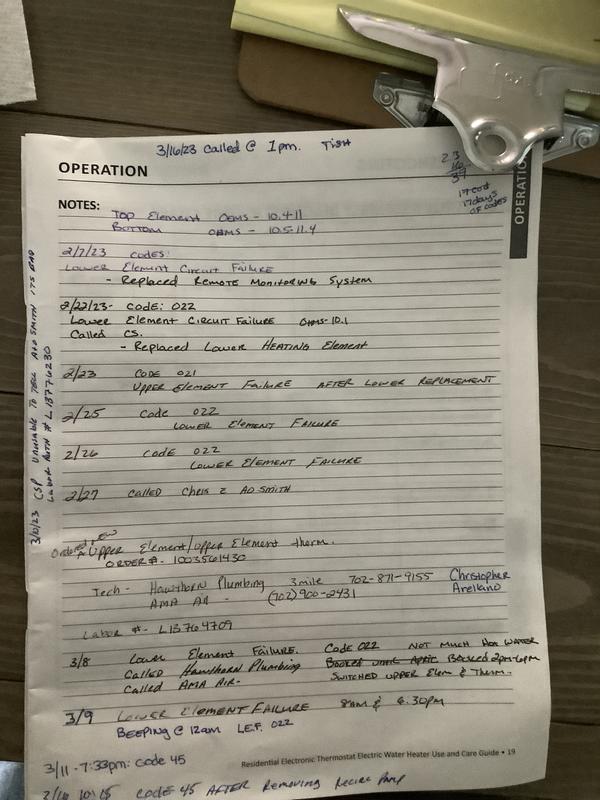 3/16/23 Called @ 1pm. Tish
OPERATION
23
16
39
17 days
of codes
OPERATION
NOTES:
Top Element OHMS - 10.4-11
Bottom OHMS - 10.5-11.4
2/7/23 codes:
Lower Element Circuit Failure
- Replaced Remote Monitoring System
2/22/23- Code: 022
Lower Element Circuit Failure OHMS-10.1
Called CS.
- Replaced Lower Heating Element
2/23 Code 021
Upper Element Failure After Lower Replacement
2/25 Code 022
Lower Element Failure
2/26 Code 022
Lower Element Failure
2/27 Called Chris @ AO Smith
Ordered new
Upper Element/Upper Element Therm.
Order#- 1003561430
Tech - Hawthorn Plumbing 3mile 702-871-9155 Christopher
AMA Air - (702) 900-2431 Arellano
Labor #- L13764709
3/8 Lower Element Failure. Code 022 Not Much Hot Water
Called Hawthorn Plumbing Booked until April Booked 2pm-6pm
Called AMA Air- Switched Upper Elem & Therm.
3/9 Lower Element Failure 8am & 6:30pm
Beeping @ 12am L.E.F. 022
Residential Electronic Thermostat Electric Water Heater Use and Care Guide • 19
3/11 - 7:33pm: code 45
10:15 Code 45 After Removing Recirc Pump
3/10/23 CSP Unable to Tell AO Smith its bad
Labor Auth # L13776230